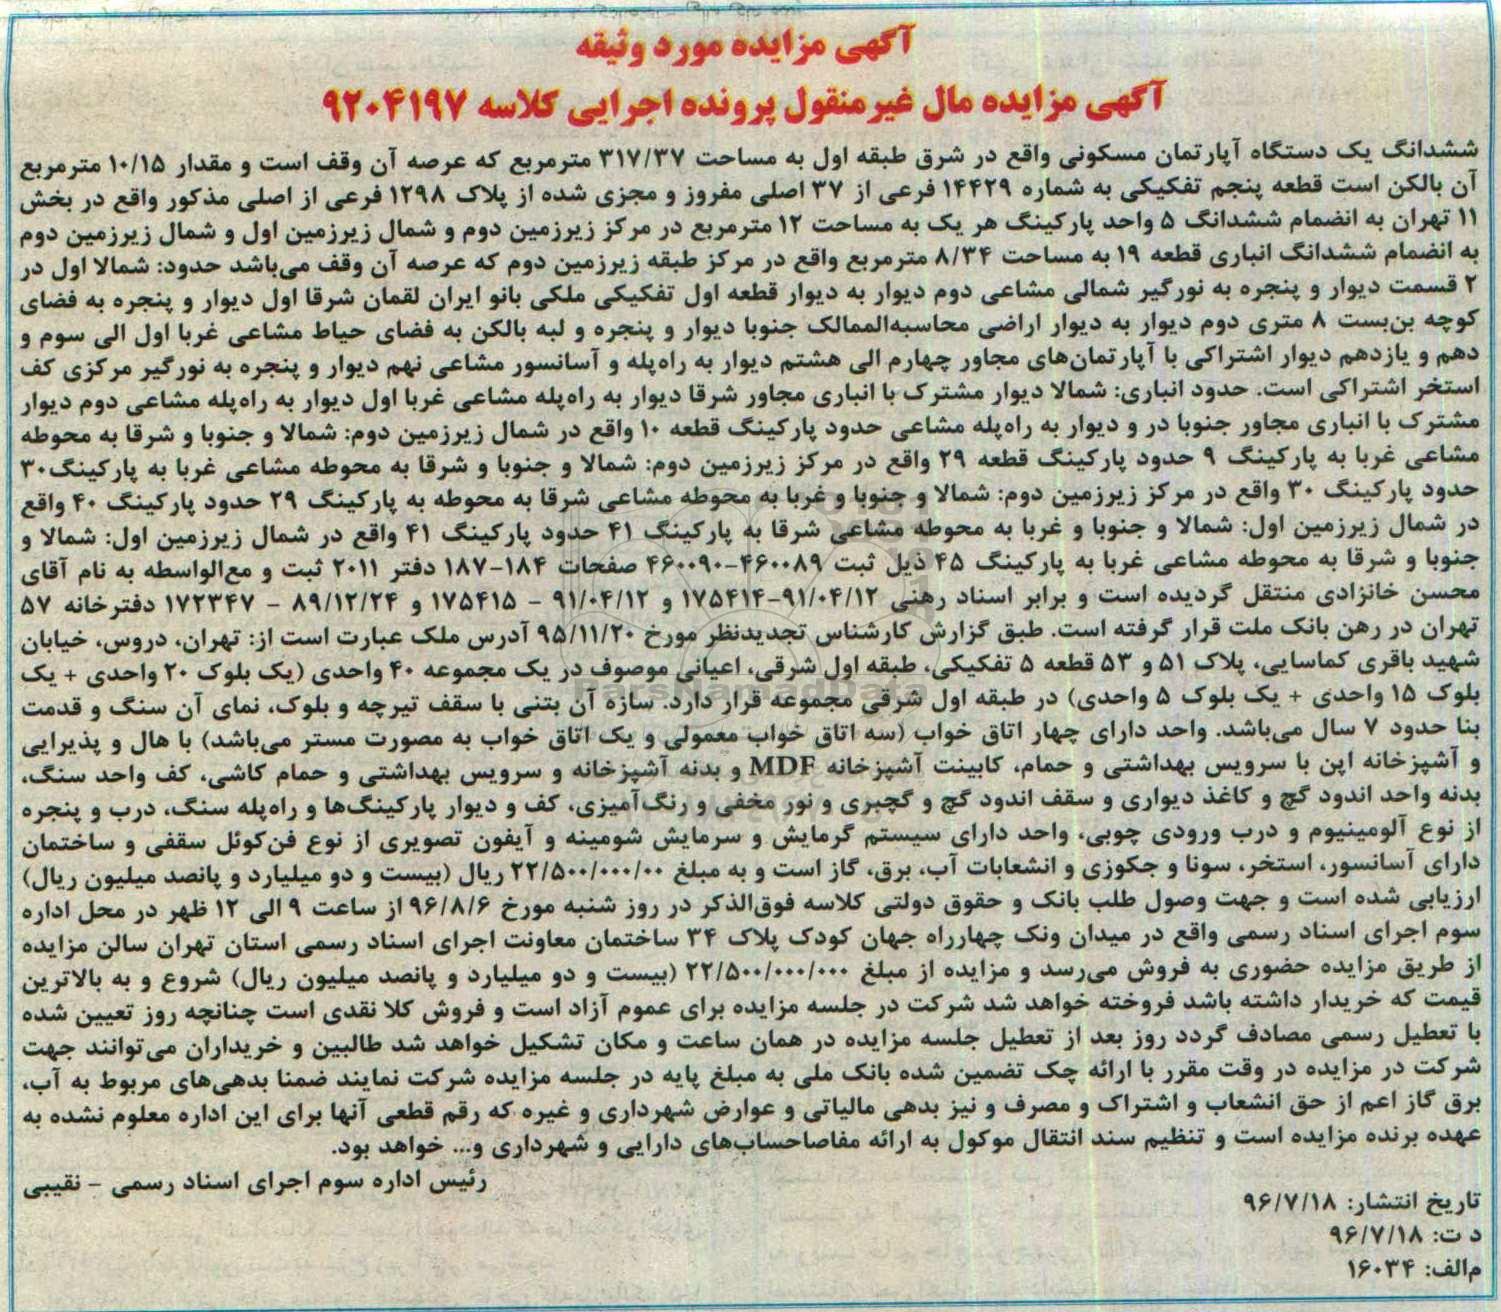 آگهی مزایده مورد وثیقه
آگهی مزایده مال غیرمنقول پرونده اجرایی کلاسه ۹۲۰۴۱۹۷
ششدانگ یک دستگاه آپارتمان مسکونی واقع در شرق طبقه اول به مساحت ۳۱۷/۳۷ مترمربع که عرصه آن وقف است و مقدار ۱۰/۱۵ مترمربع
آن بالکن است قطعه پنجم تفکیکی به شماره ۱۴۴۲۹ فرعی از ۳۷ اصلی مفروز و مجزی شده از پلاک ۱۲۹۸ فرعی از اصلی مذکور واقع در بخش
۱۱ تهران به انضمام ششدانگ ۵ واحد پارکینگ هر یک به مساحت ۱۲ مترمربع در مرکز زیرزمین دوم و شمال زیرزمین اول و شمال زیرزمین دوم
به انضمام ششدانگ انباری قطعه ۱۹ به مساحت ۸/۳۴ مترمربع واقع در مرکز طبقه زیرزمین دوم که عرصه آن وقف می‌باشد حدود: شمالا اول در
۲ قسمت دیوار و پنجره به نورگیر شمالی مشاعی دوم دیوار به دیوار قطعه اول تفکیکی ملکی بانو ایران لقمان شرقا اول دیوار و پنجره به فضای
کوچه بن‌بست ۸ متری دوم دیوار به دیوار اراضی محاسبه‌الممالک جنوبا دیوار و پنجره و لبه بالکن به فضای حیاط مشاعی غربا اول الی سوم و
دهم و یازدهم دیوار اشتراکی با آپارتمان‌های مجاور چهارم الی هشتم دیوار به راه‌پله و آسانسور مشاعی نهم دیوار و پنجره به نورگیر مرکزی کف
استخر اشتراکی است. حدود انباری: شمالا دیوار مشترک با انباری مجاور شرقا دیوار به راه‌پله مشاعی غربا اول دیوار به راه‌پله مشاعی دوم دیوار
مشترک با انباری مجاور جنوبا در و دیوار به راه‌پله مشاعی حدود پارکینگ قطعه ۱۰ واقع در شمال زیرزمین دوم: شمالا و جنوبا و شرقا به محوطه
مشاعی غربا به پارکینگ ۹ حدود پارکینگ قطعه ۲۹ واقع در مرکز زیرزمین دوم: شمالا و جنوبا و شرقا به محوطه مشاعی غربا به پارکینگ۳۰
حدود پارکینگ ۳۰ واقع در مرکز زیرزمین دوم: شمالا و جنوبا و غربا به محوطه مشاعی شرقا به محوطه به پارکینگ ۲۹ حدود پارکینگ ۴۰ واقع
در شمال زیرزمین اول: شمالا و جنوبا و غربا به محوطه مشاعی شرقا به پارکینگ ۴۱ حدود پارکینگ ۴۱ واقع در شمال زیرزمین اول: شمالا و
جنوبا و شرقا به محوطه مشاعی غربا به پارکینگ ۴۵ ذیل ثبت ۴۶۰۰۸۹-۴۶۰۰۹۰ صفحات ۱۸۴-۱۸۷ دفتر ۲۰۱۱ ثبت و مع‌الواسطه به نام آقای
محسن خانزادی منتقل گردیده است و برابر اسناد رهنی ۹۱/۰۴/۱۲-۱۷۵۴۱۴ و ۹۱/۰۴/۱۲ - ۱۷۵۴۱۵ و ۸۹/۱۲/۲۴ - ۱۷۲۳۴۷ دفترخانه ۵۷
تهران در رهن بانک ملت قرار گرفته است. طبق گزارش کارشناس تجدیدنظر مورخ ۹۵/۱۱/۲۰ آدرس ملک عبارت است از: تهران، دروس، خیابان
شهید باقری کماسایی، پلاک ۵۱ و ۵۳ قطعه ۵ تفکیکی، طبقه اول شرقی، اعیانی موصوف در یک مجموعه ۴۰ واحدی (یک بلوک ۲۰ واحدی + یک
بلوک ۱۵ واحدی + یک بلوک ۵ واحدی) در طبقه اول شرقی مجموعه قرار دارد. سازه آن بتنی با سقف تیرچه و بلوک، نمای آن سنگ و قدمت
بنا حدود ۷ سال می‌باشد. واحد دارای چهار اتاق خواب (سه اتاق خواب معمولی و یک اتاق خواب به مصورت مستر می‌باشد) با هال و پذیرایی
و آشپزخانه اپن با سرویس بهداشتی و حمام، کابینت آشپزخانه MDF و بدنه آشپزخانه و سرویس بهداشتی و حمام کاشی، کف واحد سنگ،
بدنه واحد اندود گچ و کاغذ دیواری و سقف اندود گچ و گچبری و نور مخفی و رنگ‌آمیزی، کف و دیوار پارکینگ‌ها و راه‌پله سنگ، درب و پنجره
از نوع آلومینیوم و درب ورودی چوبی، واحد دارای سیستم گرمایش و سرمایش شومینه و آیفون تصویری از نوع فن‌کوئل سقفی و ساختمان
دارای آسانسور، استخر، سونا و جکوزی و انشعابات آب، برق، گاز است و به مبلغ ۲۲/۵۰۰/۰۰۰/۰۰ ریال (بیست و دو میلیارد و پانصد میلیون ریال)
ارزیابی شده است و جهت وصول طلب بانک و حقوق دولتی کلاسه فوق‌الذکر در روز شنبه مورخ ۹۶/۸/۶ از ساعت ۹ الی ۱۲ ظهر در محل اداره
سوم اجرای اسناد رسمی واقع در میدان ونک چهارراه جهان کودک پلاک ۳۴ ساختمان معاونت اجرای اسناد رسمی استان تهران سالن مزایده
از طریق مزایده حضوری به فروش می‌رسد و مزایده از مبلغ ۲۲/۵۰۰/۰۰۰/۰۰۰ (بیست و دو میلیارد و پانصد میلیون ریال) شروع و به بالاترین
قیمت که خریدار داشته باشد فروخته خواهد شد شرکت در جلسه مزایده برای عموم آزاد است و فروش کلا نقدی است چنانچه روز تعیین شده
با تعطیل رسمی مصادف گردد روز بعد از تعطیل جلسه مزایده در همان ساعت و مکان تشکیل خواهد شد طالبین و خریداران می‌توانند جهت
شرکت در مزایده در وقت مقرر با ارائه چک تضمین شده بانک ملی به مبلغ پایه در جلسه مزایده شرکت نمایند ضمنا بدهی‌های مربوط به آب،
برق گاز اعم از حق انشعاب و اشتراک و مصرف و نیز بدهی مالیاتی و عوارض شهرداری و غیره که رقم قطعی آنها برای این اداره معلوم نشده به
عهده برنده مزایده است و تنظیم سند انتقال موکول به ارائه مفاصاحساب‌های دارایی و شهرداری و... خواهد بود.
رئیس اداره سوم اجرای اسناد رسمی - نقیبی
تاریخ انتشار: ۹۶/۷/۱۸
د ت: ۹۶/۷/۱۸
م‌الف: ۱۶۰۳۴